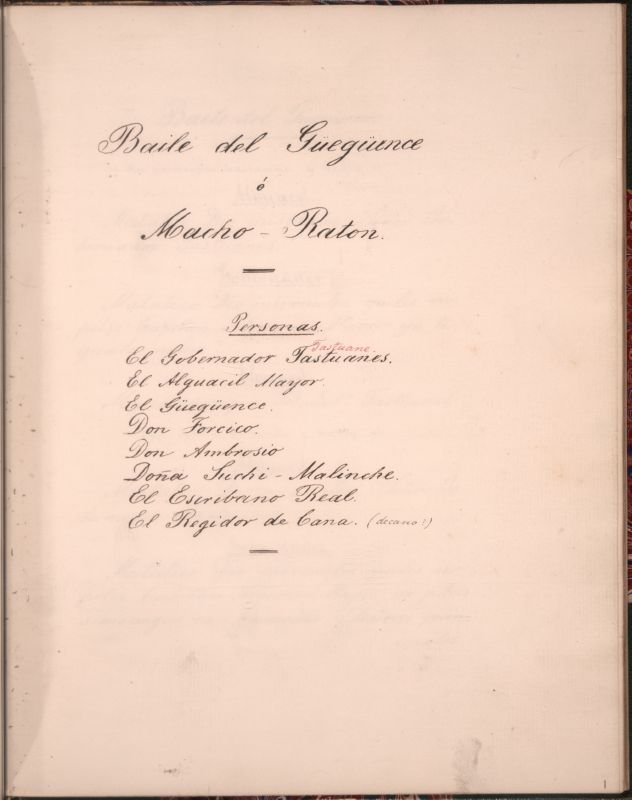 Baile del Güegüence
ó
Macho-Raton.
Personas.
Tastuane.
El Gobernador Tastuanes.
El Alguacil Mayor.
El Güegüence.
Don Forcico.
Don Ambrosio
Doña Suchi-Malinche.
El Escribano Real.
El Regidor de Cana. (decano?)
1